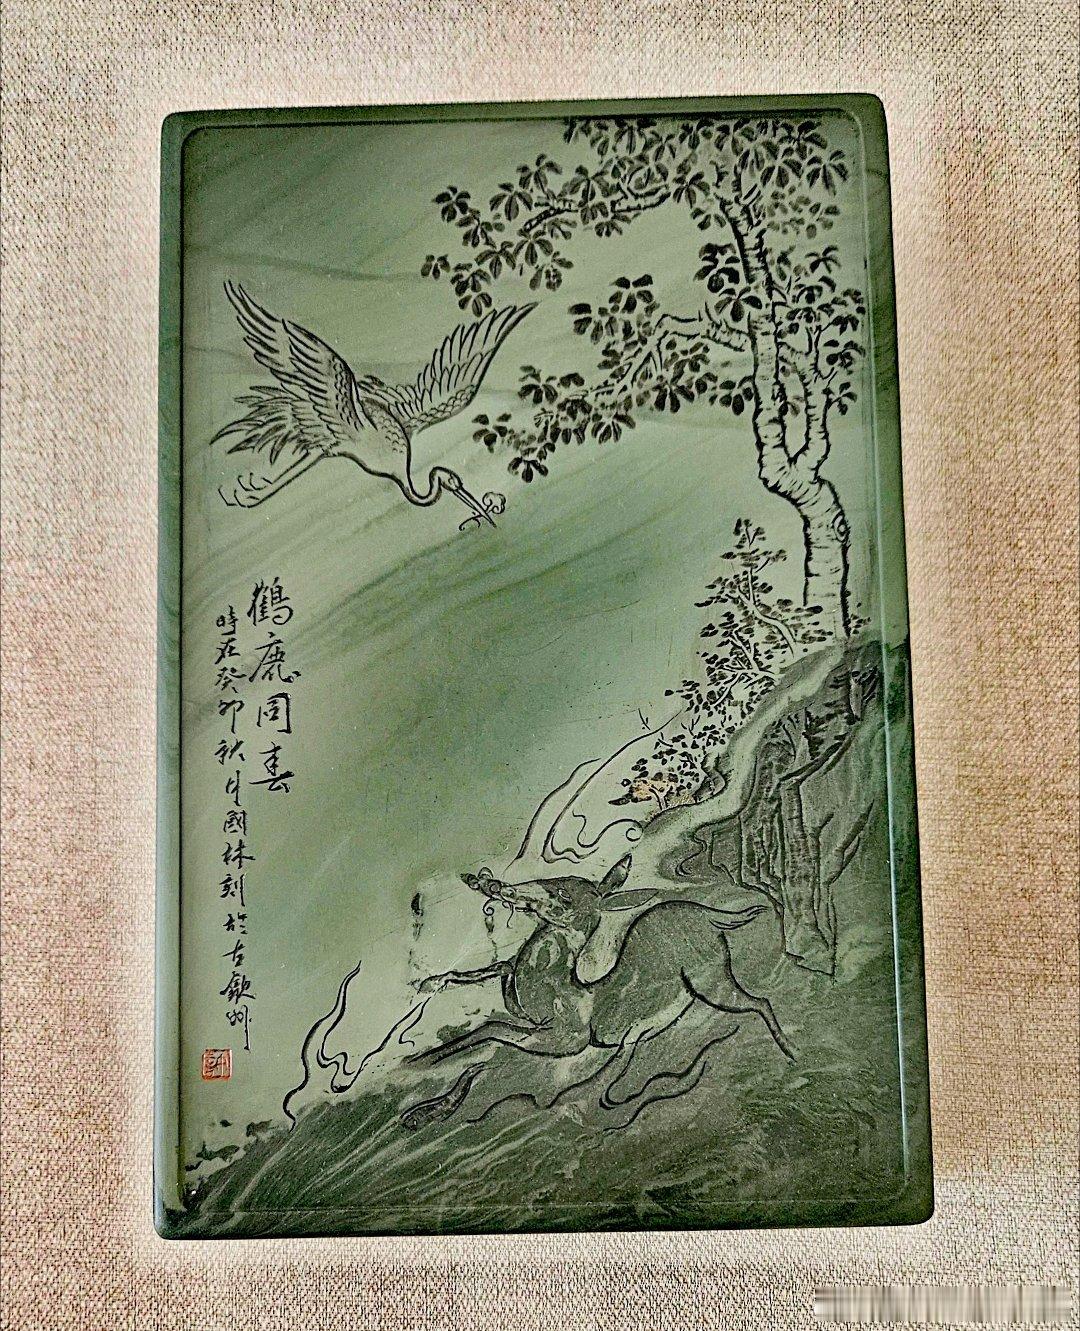 鶴鹿同春
時在癸卯秋月國林刻於古歙州